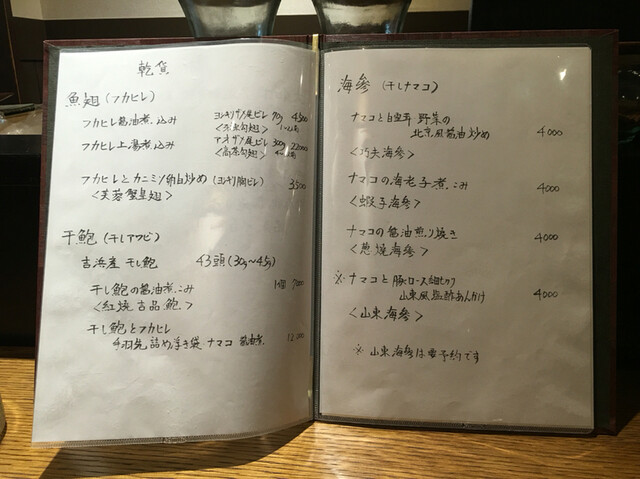 乾貨
魚翅(フカヒレ)
フカヒレ醤油煮込み ヨシキリザメ尾ビレ 70g 4500
1~2名
フカヒレ上湯煮込み アオザメ尾ビレ 300g 22000
フカヒレとカニミソ卵白炒め(ヨシキリ胸ビレ) 3500
<芙蓉蟹皇翅>
干鮑(干しアワビ)
吉浜産 干し鮑 43頭(30g~45g)
干し鮑の醤油煮こみ 1個 7000
<紅焼吉品鮑>
干し鮑とフカヒレ
手羽先詰め 浮き袋 ナマコ 醤油煮 12000
海参(干しナマコ)
ナマコと白霊茸 野菜の
北京風醤油炒め 4000
<巧夫海参>
ナマコの海老子煮こみ 4000
<蝦子海参>
ナマコの醤油煎り焼き 4000
<葱焼海参>
※ナマコと豚ロース細切り
山東風塩酢あんかけ 4000
<山東海参>
※山東海参は要予約です